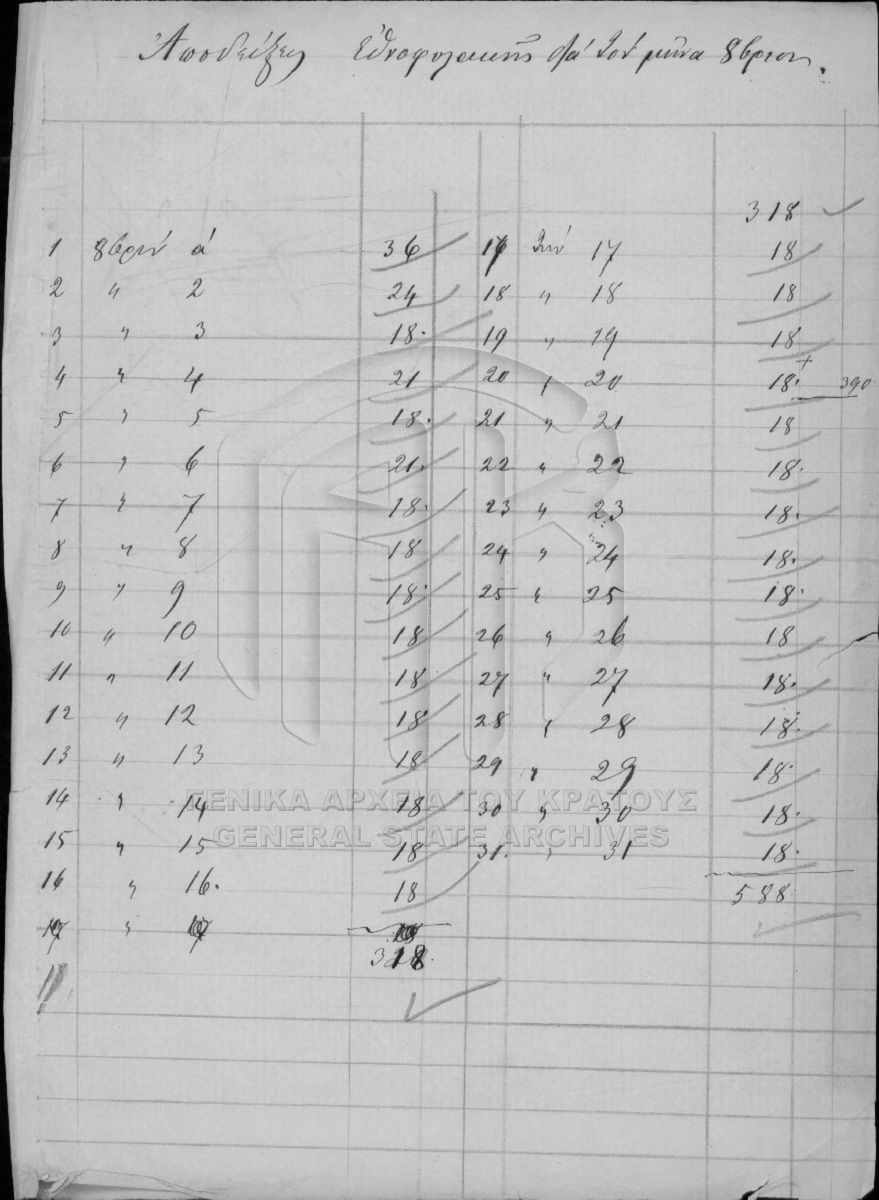 Ἀποδείξεις Ἐθνοφυλακῆς διά τόν μῆνα 8βριον.
318
1 8βρίου ά 36
2 〃 2 24
3 〃 3 18.
4 〃 4 21
5 〃 5 18.
6 〃 6 21.
7 〃 7 18.
8 〃 8 18
9 〃 9 18.
10 〃 10 18
11 〃 11 18
12 〃 12 18
13 〃 13 18
14 〃 14 18
15 〃 15 18
16 〃 16. 18
318.
17 17 18
18 〃 18 18
19 〃 19 18
20 〃 20 18. 390
21 〃 21 18
22 〃 22 18.
23 〃 23 18.
24 〃 24 18.
25 〃 25 18.
26 〃 26 18
27 〃 27 18.
28 〃 28 18.
29 〃 29 18.
30 〃 30 18.
31. 〃 31 18.
588
ΓΕΝΙΚΑ ΑΡΧΕΙΑ ΤΟΥ ΚΡΑΤΟΥΣ
GENERAL STATE ARCHIVES